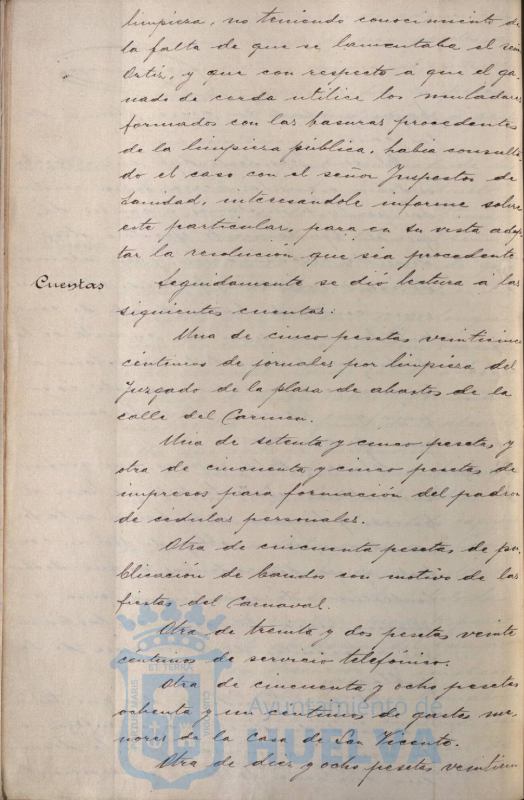 limpieza, no teniendo conocimiento de
la falta de que se lamentaba el señ
Ortiz, y que con respecto á que el ga
nado de cerda utilice los muladares
formados con las basuras procedentes
de la limpieza pública, habia consulta
do el caso con el señor Inspector de
Sanidad, interesándole informe sobre
este particular, para en su vista adop
tar la resolución que sea procedente
Cuentas
Seguidamente se dió lectura á las
siguientes cuentas:
Una de cinco pesetas veinticinco
céntimos de jornales por limpieza del
Juzgado de la plaza de abastos de la
calle del Carmen.
Una de setenta y cinco pesetas y
otra de cincuenta y cinco pesetas de
impresos para formación del padron
de cédulas personales.
Otra de cincuenta pesetas de pu
blicación de bandos con motivo de las
fiestas del Carnaval.
Otra de treinta y dos pesetas veinte
céntimos de servicio telefónico.
Otra de cincuenta y ocho pesetas
ochenta y un céntimos de gastos me
nores de la casa de San Vicente.
Otra de diez y ocho pesetas
PORTUS MARIS
ET TERRÆ
CUSTODIA
Ayuntamiento de
HUELVA